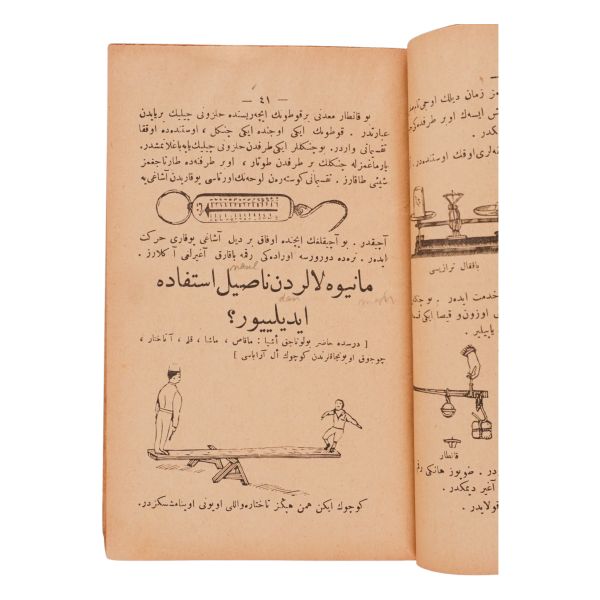 — ٤١ —
بو قانطار معدنی بر قوطونك ایچریسنده حلزونی چلیك بر یایدن
عبارتدر . قوطونك ایكی اوجنده ایكی چنكل ، اوستنده ده اوققا
تقسیماتی واردر . بو چنكللر ایكی طرفدن حلزونی چلیك یایه باغلانمشدر .
پارماغمزله چنكلك بر طرفدن طوتار ، اوبر طرفنده ده طارتاجغمز
شیئی طاقارز . تقسیماتی كوسترن لوحه نك اورتاسی یوقاریدن آشاغی یه
آچیقدر . بو آچیقلغك ایچنده اوفاق بر دیل آشاغی یوقاری حركت
ایدر . نره ده دورورسه اوراده كی رقمه باقارق آغیرلغی آ كلارز .
مانیوه لالردن ناصیل استفاده
ایدیلییور؟
[ درسده حاضر بولوناجق أشیا : مقاص ، ماشا ، قلم ، آناختار ،
چوجوق اویونجاقلرندن كوچوك ال آراباسی ]
كوچوك ایكن همن هپكز تاختاره واللی اویونی اوینامشسكزدر.
زمان دیلك اوجی
ایسه ك اوبر طرفده كی
اوقك اوستنده در
باققال ترازیسی
خدمت ایدر .
اوزون و قیصا ایكی
یاپیلیر .
قانطار
هانكی
آغیر دیمكدر .
قولایدر .